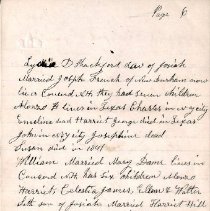 Page 6
Lydia D Blackford daw of Josiah
Married Joseph French of New Durham now
live Concord NH they had seven children
Alonzo B lives in Texas Charls in N Y city
Emeline dead Harriet George died in Texas
John in N Y city Josephine dead
Susan died in 1841
William Married Mary Lane lives in
Concord NH has six children Alonzo
Harriet, Celestia, James, Ellen & Walter
Seth son of Josiah Married Harriet Hill